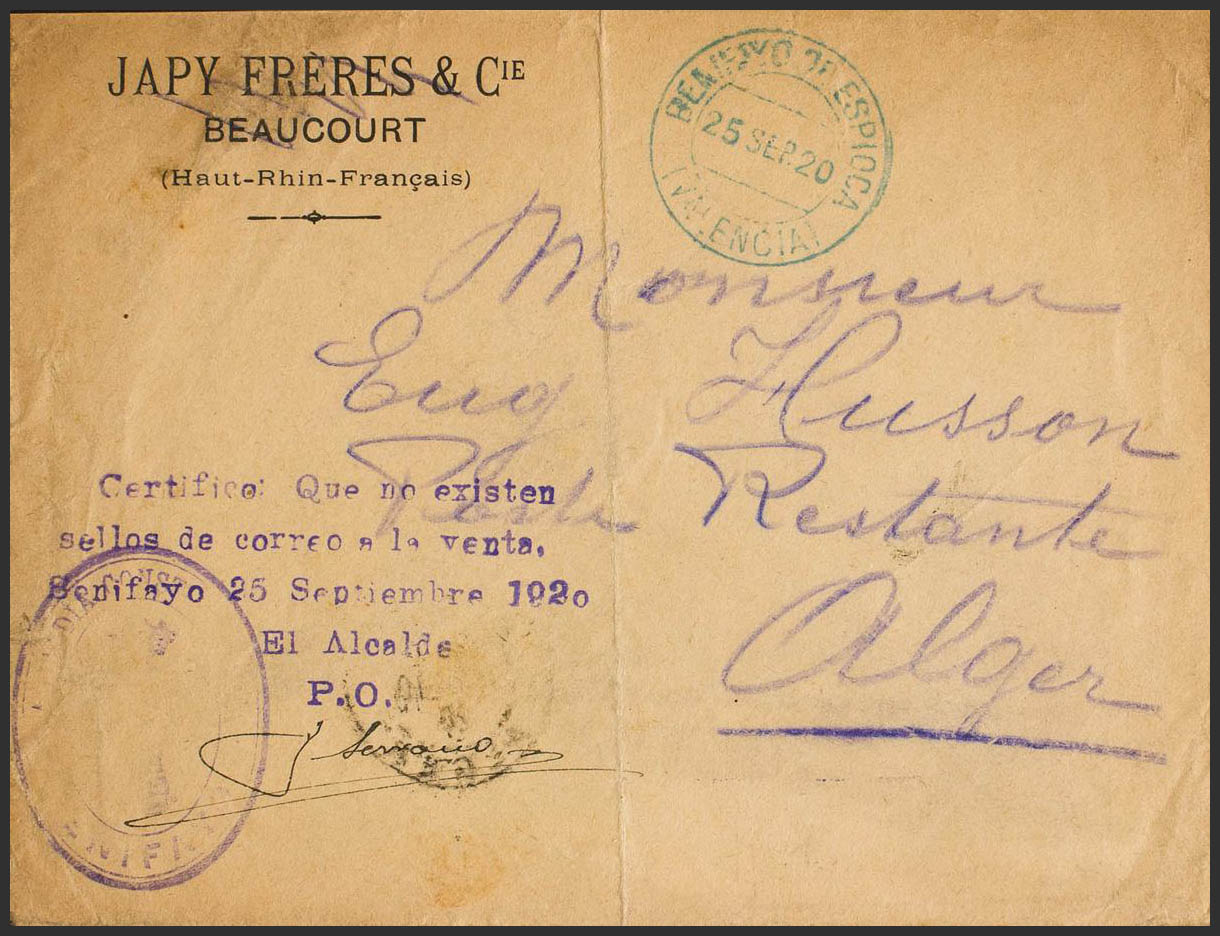 JAPY FRÈRES & CIE
BEAUCOURT
(Haut-Rhin-Français)
BENIFAYO DE ESPIOCA
25 SEP. 20
(VALENCIA)
Monsieur
Eug Husson
Poste Restante
Alger
Certifico: Que no existen
sellos de correo a la venta.
Benifayo 25 Septiembre 1920
El Alcalde
P.O.
J Serrano